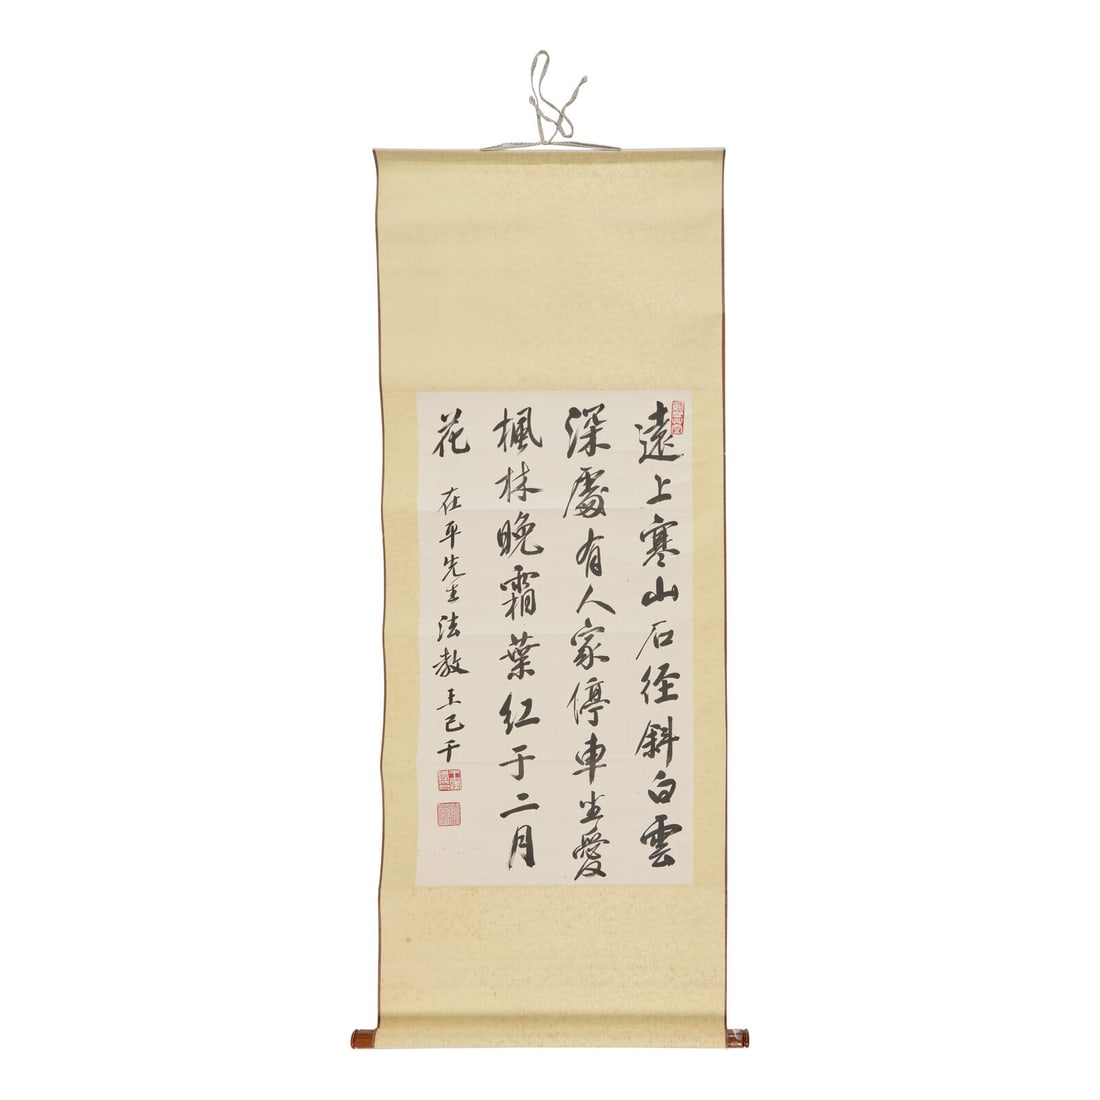 遠上寒山石徑斜白雲
深處有人家停車坐愛
楓林晚霜葉红于二月
花
在平先生法教王己千